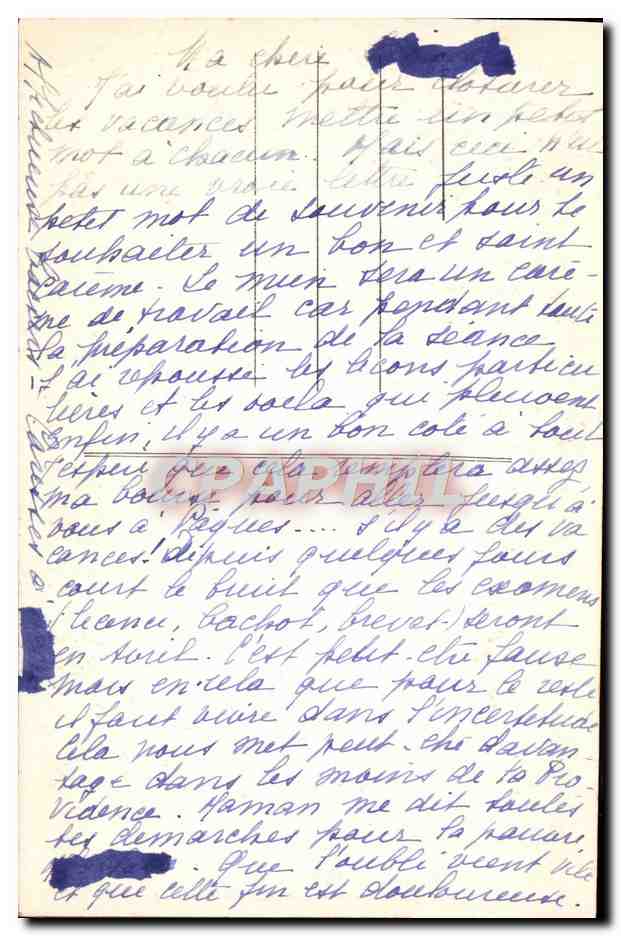 Ma chère
J'ai voulu pour cloturer
les vacances mettre un petit
mot à chacun. Mais ceci n'est
pas une vraie lettre juste un
petit mot de souvenir pour te
souhaiter un bon et saint
carême. Le mien sera un carê-
me de travail car pendant toute
la préparation de la séance
j'ai repoussé les leçons particu
lières et les voila qui pleuvent
enfin, il y a un bon coté à tout
j'espère que cela remplira assez
ma bourse pour aller jusqu'à
vous à Pâques.... s'il y a des va
cances! depuis quelques jours
court le bruit que les examens
(licence, bachot, brevet) seront
en Avril. C'est peut-être faux
mais en cela que pour le reste
il faut vivre dans l'incertitude
Cela nous met peut-être davan-
tage dans les mains de la Pro-
vidence. Maman me dit toutes
tes démarches pour la pauvre
. Que l'oubli vient vite
et que cette fin est douloureuse.
Affectueux baisers - Caresses à
CPARHIL